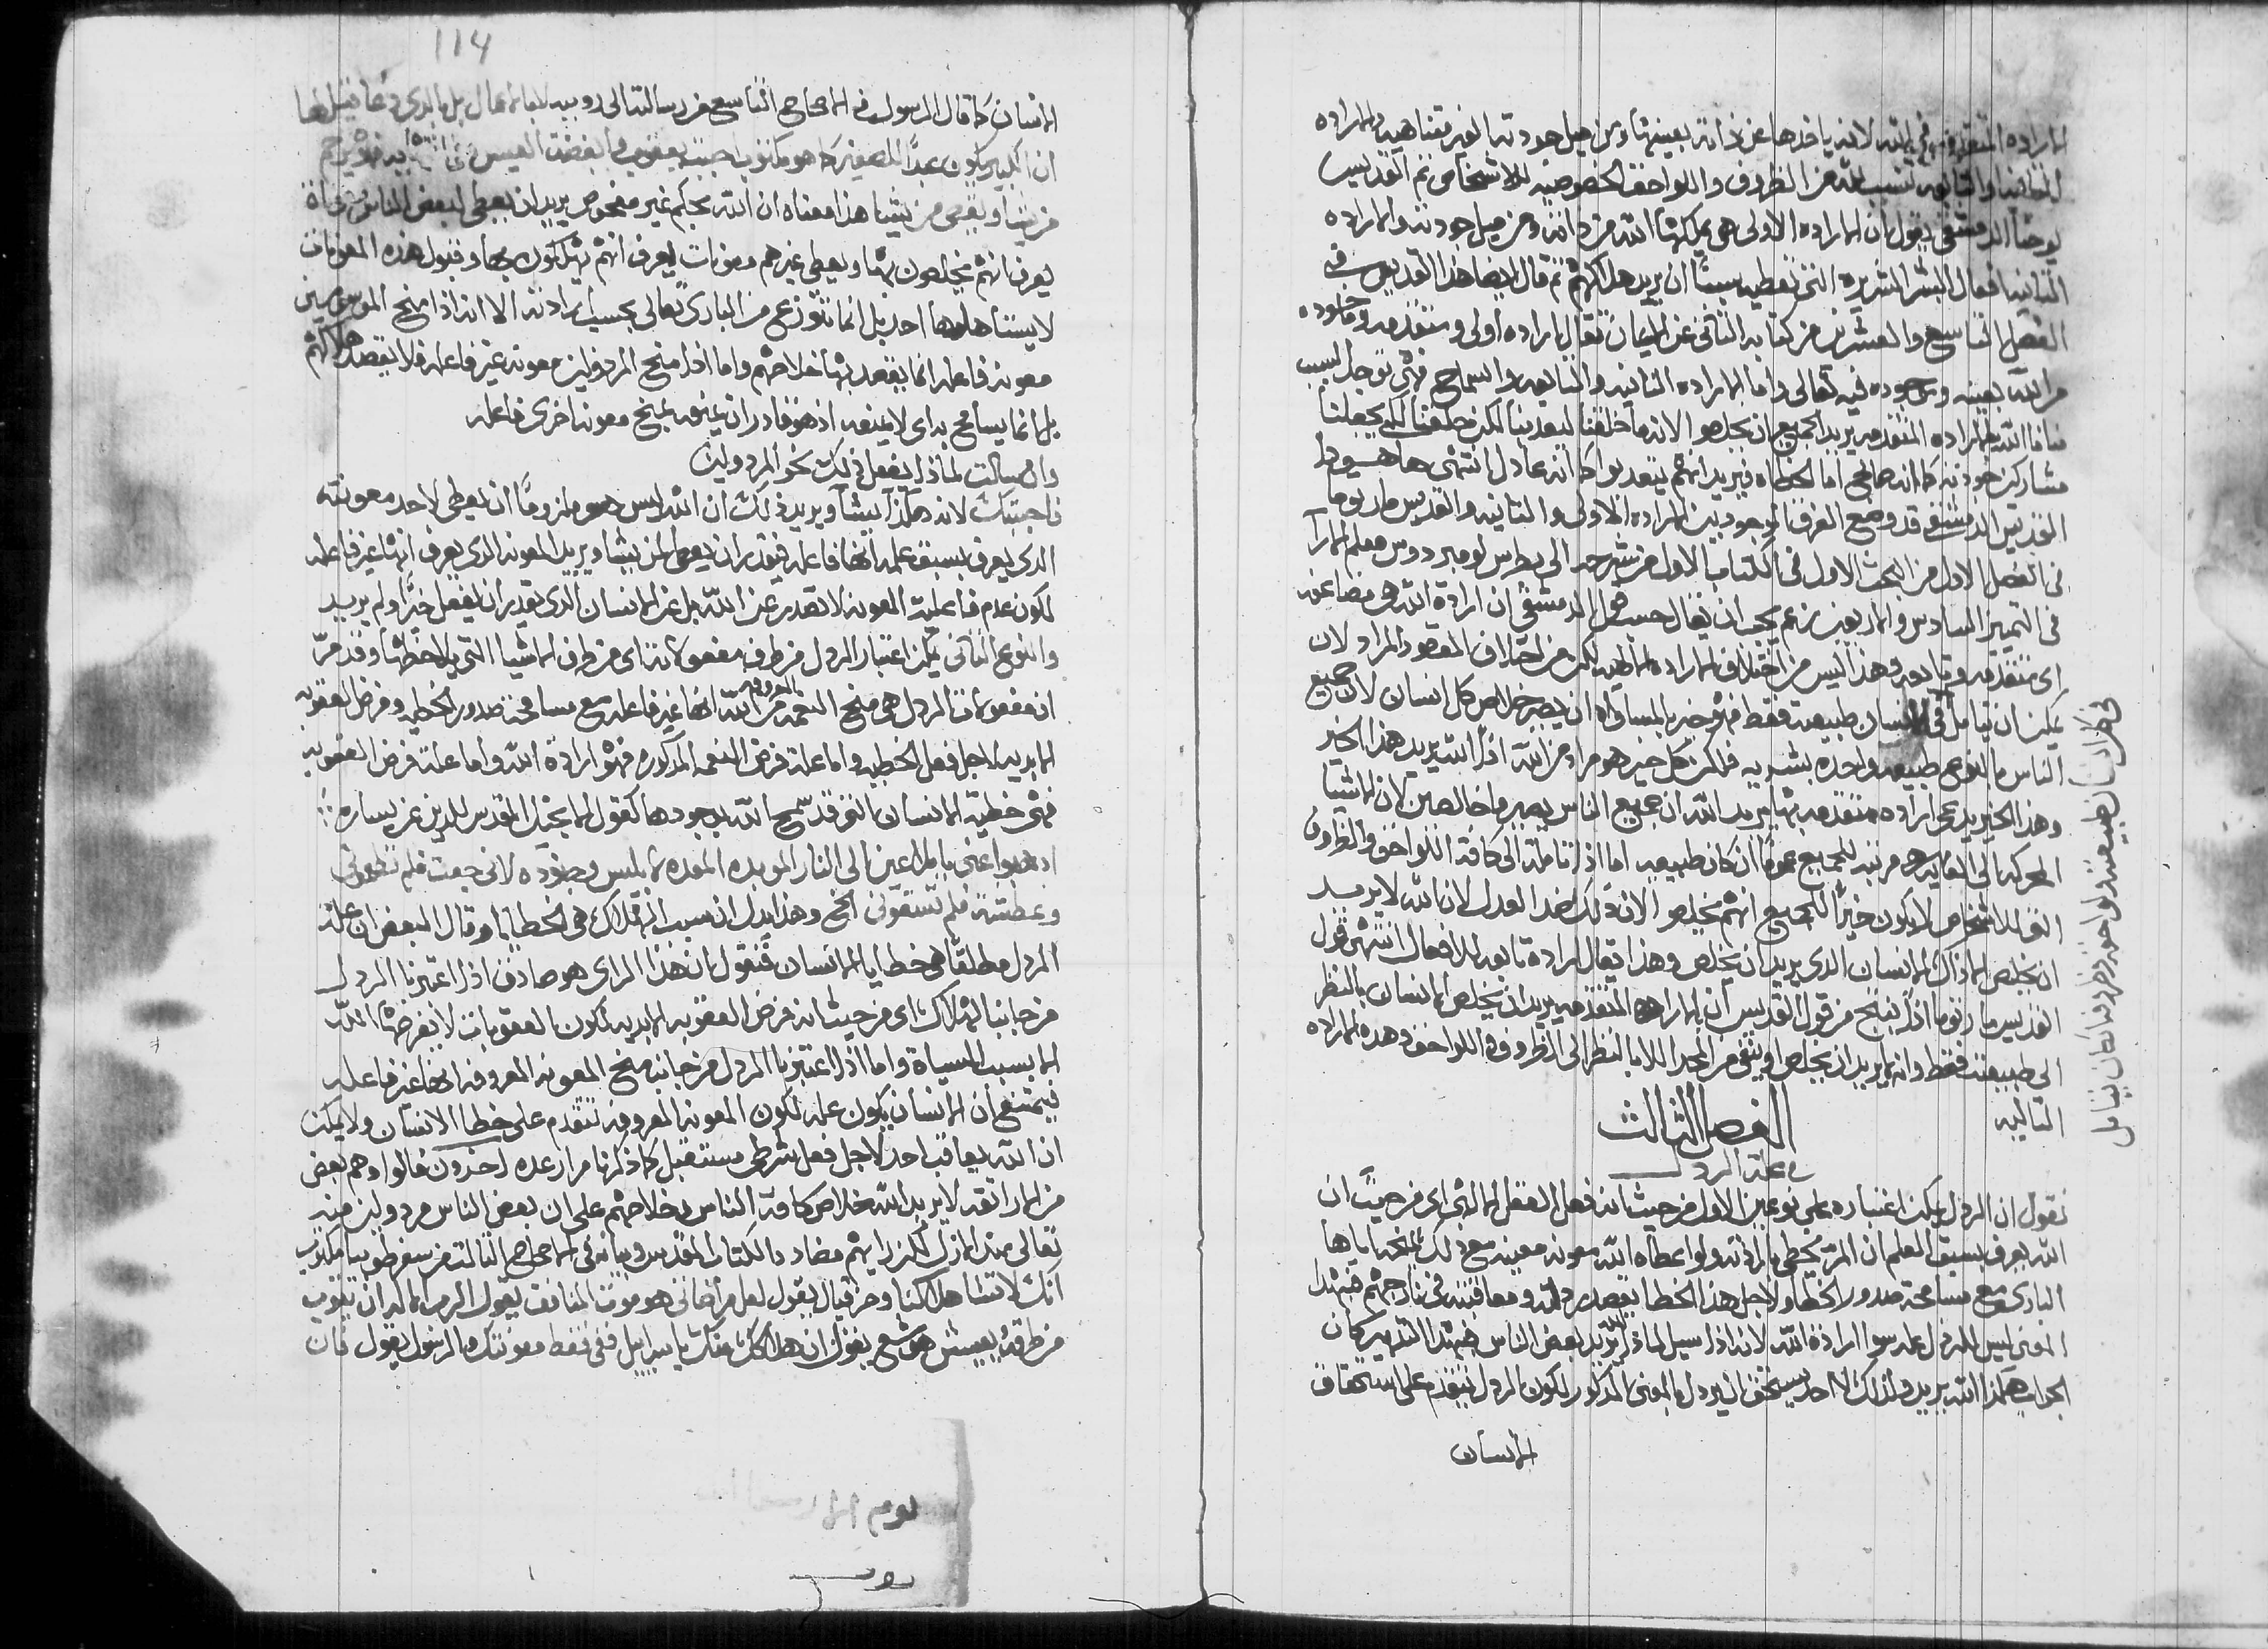 الاراده المتقدمه في الله لانه ياخذها عن ذاته بعينها ومن ميل جودته الغير متناهيه والاراده
الثانيه والتابعه تنسب لله من الظروف واللواحق الخصوصيه للاشخاص ثم القديس
يوحنا الدمشقي يقول ان الاراده الاولى هي يملكها الله من ذاته ومن ميل جودته والاراده
الثانيه افعال البشر الشريره التي تعطيه سببًا ان يريد هلاكهم ثم قال ايضا هذا القديس في
الفصل التاسع والعشرين من كتابه الثاني عن الايمان تقال الاراده اولى ومتقدمه وموجوده
من الله بعينه وموجوده فيه تعالى واما الاراده الثانيه والتابعه والسماح فهي توجد لسبب
منا فالله بالاراده المتقدمه يريد الجميع ان يخلصوا لانه ما خلقنا ليعذبنا لكن خلقنا لكي يجعلنا
مشاركين جودته كما انه صالح اما الخطاه فيريد انهم يتعذبوا كما انه عادل انتهى ها هوذا
القديس الدمشقي قد وضع الفرق الموجود بين الاراده الاولى والثانيه والقديس مار توما
في الفصل الاول من البحث الاول في الكتاب الاول من شرحه الى بطرس لومبردوس معلم الارآ
في التمييز السادس والاربعين زعم يجب ان يقال حسب قول الدمشقي ان ارادة الله هي مضاعفه
اي متقدمه وتابعه وهذا ليس من اختلاف الاراده الباطنيه لكن من اختلاف المقصود المراد لان
يمكن ان نتامل في الانسان طبيعته فقط فهو خير بالمساواه ان يصير خلاص كل انسان لان جميع
الناس بالنوع طبيعه واحده بشريه فلكن كل خير هو مراد من الله اذًا الله يريد هذا الخير
وهذا الخير يدعى اراده متقدمه بها يريد الله ان جميع الناس يصيروا خالصين لان الاشيا
المحركه الى الغايه هي مرتبه للجميع عمومًا ان كان طبيعيه اما اذا تاملنا الى كافة اللواحق والظروف
التي للاشخاص لا يكون خيرًا للجميع انهم يخلصوا لان ذلك ضد العدل لان الله لا يريد
ان يخلص الا ذاك الانسان الذي يريد ان يخلص وهذا يقال اراده تابعه للافعال انتهى قول
القديس مار توما اذًا ينتج من قول القديس ان بالاراده المتقدمه يريد ان يخلص الانسان بالنظر
الى طبيعته فقط وانه يريد ان يخلص او ينفي من المجد الا بالنظر الى الظروف واللواحق وهذه الاراده
التاليه
الفصل الثالث
في علة الردل
نقول ان الردل يمكن اعتباره على نوعين الاول من حيث انه فعل العقل الالهي اي من حيث ان
الله يعرف بسبق العلم ان المر يخطي بارادته ولو اعطاه الله معونه معينه مع ذلك يمنحه اياها
الباري مع مسامحة صدور الخطا ولاجل هذا الخطا يقصد ردله ومعاقبته في نار جهنم فبهذا
المعنى ليس للردل عله سوا ارادة الله لانه اذا سيل لماذا الله يريد بعض الناس ضد التدبير كان
الجواب هكذا الله يريد ولذلك لا احد يستحق اليردل بالمعنى المذكور لكون الردل يتقدم على استحقاق
الانسان
في كل انسان طبيعته ولواحقه وظروفه انكان نتامل
114
الانسان كما قال الرسول في الاصحاح التاسع من رسالته الى روميه ليس بالاعمال بل بالذي دعا قيل لها
ان الكبير يكون عبدًا للصغير كما هو مكتوب احببت يعقوب وابغضت العيس
من يشا ويقسي من يشا هذا معناه ان الله بحكم غير مفحوص يريد ان يعطي لبعض الناس معونات
يعرف انهم يخلصون بها ويعطي غيرهم معونات يعرف انهم يهلكون بها وقبول هذه المعونات
لا يستاهلها احد بل انما تتوزع من الباري تعالى بحسب ارادته الا انه اذا منح الموسومين
معونه فاعله انما يقصد بها خلاصهم واما اذا منح المردولين معونه غير فاعله فلا يقصد هلاكهم
بل انما يسامح به اي لا يمنعه اذ هو قادر ان يمنعه بمنح معونه اخرى فاعله
وان سالت لماذا يفعل ذلك نحو المردولين
فاجبتك لانه هكذا يشا ويريد ذلك ان الله ليس هو ملزومًا ان يعطي لاحد معونته
الذي يعرف بسبق علمه انها فاعله فيقدر ان يعطي لمن يشا ويريد المعونه الذي يعرف انها غير فاعله
لكون عدم فاعلية المعونه لا تصدر عن الله بل عن الانسان الذي يقدر ان يفعل خيرًا ولم يريد
والنوع الثاني يمكن اعتبار الردل من طرف مفعولاته اي من طرف الاشيا التي يلاحظها وقد مرّ
ان مفعولات الردل هي منح النعمه المعروفه من الله انها غير فاعله مع مسامحة صدور الخطيه وفرض العقوبه
الابديه لاجل فعل الخطيه واما علة فرض النعمه المذكوره فهو ارادة الله واما علة فرض العقوبه
فهي خطية الانسان التي قد سمح الله بوجودها كقول الانجيل المقدس للذين عن يساره
اذهبوا عني يا ملاعين الى النار الموبده المعده لابليس وجنوده لاني جعت فلم تطعموني
وعطشت فلم تسقوني الخ وهذا يدل ان سبب الهلاك هي الخطايا وقال البعض ان علة
الردل مطلقًا هي خطايا الانسان فنقول ان هذا الراي هو صادق اذا اعتبرنا الردل
من جانب الهلاك اي من حيث انه فرض العقوبه الابديه لكون العقوبات لا يفرضها الله
الا بسبب السياة واما اذا اعتبرنا الردل من جانب منح المعونه المعروفه انها غير فاعله
فيمتنع ان الانسان يكون عله لكون المعونه المعروفه تتقدم على خطا الانسان ولا يمكن
ان الله يعاقب احد لاجل فعل شرطي مستقبل كما ذكرنا مرار عده اخرون قالوا وهم بعض
من الاراتقه لا يريد الله خلاص كافة الناس بخلاصهم على ان بعض الناس مردولين منه
تعالى منذ الازل لكن رايهم مضاد بالكتاب المقدس وبيانه في الاصحاح الثالث من سفر طوبيا مكتوب
انك لا تشا هلاكنا وحزقيال يقول لعل مرضاتي هو موت المنافق يقول الرب الاله ان يتوب
من طرقه يعيش هوشع يقول ان هلاكك منك يا اسراييل ففي فقط معونتك والرسول يقول فان
يوم